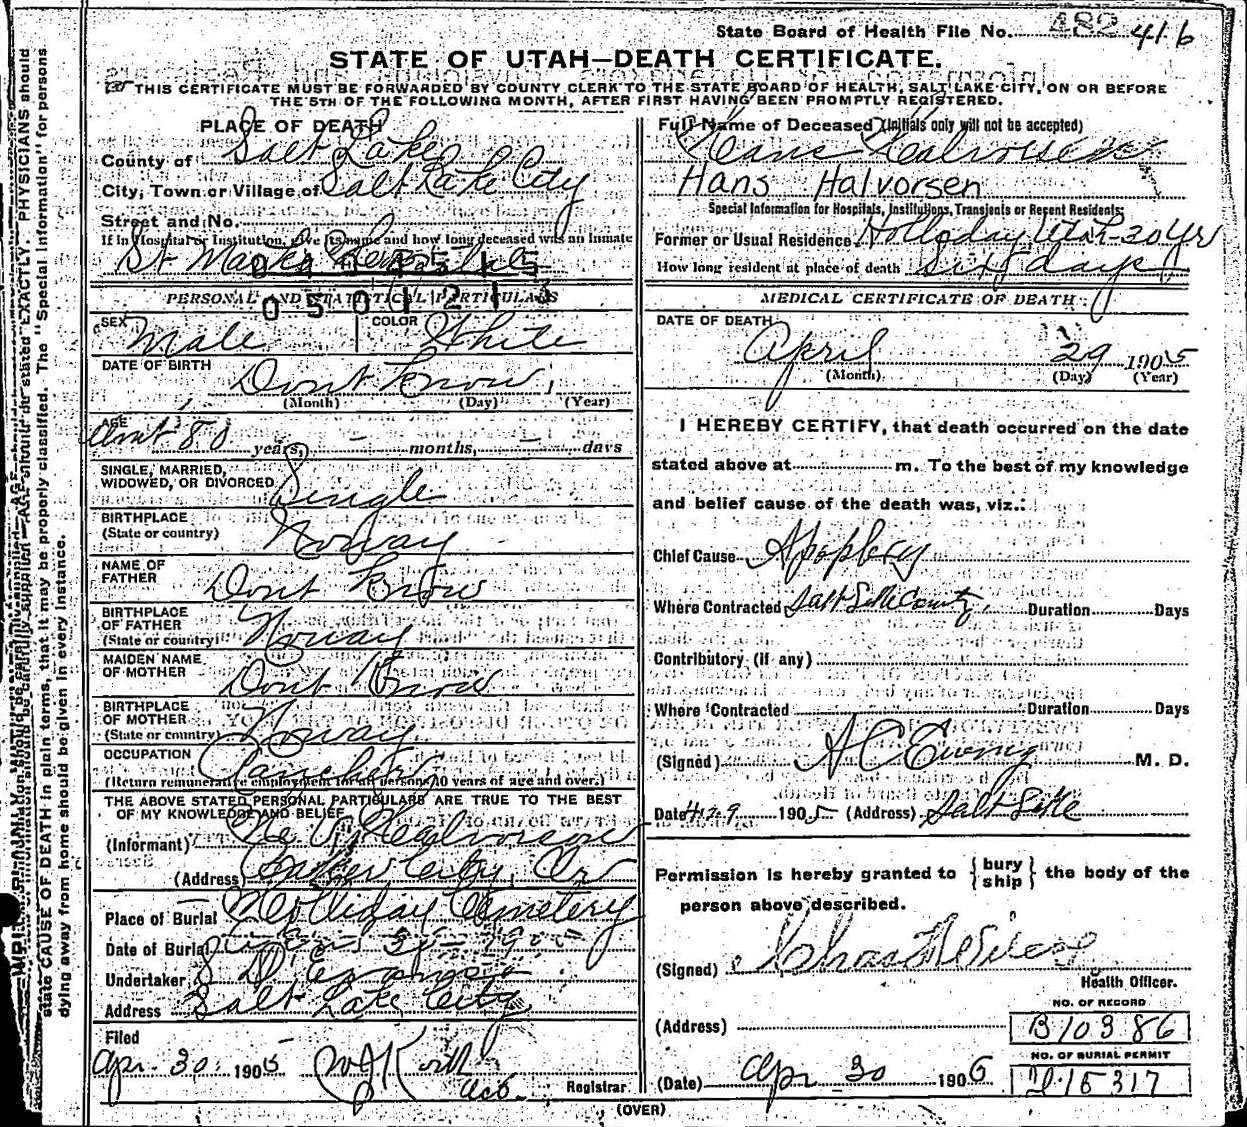 State Board of Health File No. 482 416
STATE OF UTAH—DEATH CERTIFICATE.
THIS CERTIFICATE MUST BE FORWARDED BY COUNTY CLERK TO THE STATE BOARD OF HEALTH, SALT LAKE CITY, ON OR BEFORE
THE 5TH OF THE FOLLOWING MONTH, AFTER FIRST HAVING BEEN PROMPTLY REGISTERED.
PLACE OF DEATH
County of Salt Lake
City, Town or Village of Salt Lake City
Street and No.
If in Hospital or Institution, give its name and how long deceased was an inmate
St Marks Hospital
0404515
0501213
PERSONAL AND STATISTICAL PARTICULARS
SEX Male COLOR White
DATE OF BIRTH Dont Know
(Month) (Day) (Year)
AGE abt 80 years, - months, - days
SINGLE, MARRIED,
WIDOWED, OR DIVORCED Single
BIRTHPLACE
(State or country) Norway
NAME OF
FATHER Dont Know
BIRTHPLACE
OF FATHER
(State or country) Norway
MAIDEN NAME
OF MOTHER Dont Know
BIRTHPLACE
OF MOTHER
(State or country) Norway
OCCUPATION Rancher
(Return remunerative employment for all persons 10 years of age and over.)
THE ABOVE STATED PERSONAL PARTICULARS ARE TRUE TO THE BEST
OF MY KNOWLEDGE AND BELIEF
(Informant) Halvorsen
(Address) Baker City, Or
Place of Burial Holliday Cemetery
Date of Burial 30 1905
Undertaker S D Evans
Address Salt Lake City
Filed
Apr. 30 1905 Registrar.
Full Name of Deceased (Initials only will not be accepted)
Hans Halvorsen
Hans Halvorsen
Special Information for Hospitals, Institutions, Transients or Recent Residents:
Former or Usual Residence Holloday Utah-30 Yr
How long resident at place of death six days
MEDICAL CERTIFICATE OF DEATH
DATE OF DEATH
April 29 1905
(Month) (Day) (Year)
I HEREBY CERTIFY, that death occurred on the date
stated above at m. To the best of my knowledge
and belief cause of the death was, viz.:
Chief Cause Apoplexy
Where Contracted Salt Lake County, Duration Days
Contributory (If any)
Where Contracted Duration Days
(Signed) A C Ewing M. D.
Date 4-29 1905 (Address) Salt Lake
Permission is hereby granted to {bury
ship} the body of the
person above described.
(Signed)
Health Officer.
NO. OF RECORD
(Address) B10386
NO. OF BURIAL PERMIT
(Date) Apr 30 1905 15317
(OVER)
WRITE PLAINLY, WITH
AGE should be stated EXACTLY. PHYSICIANS should
state CAUSE OF DEATH in plain terms, that it may be properly classified. The "Special Information" for persons
dying away from home should be given in every instance.